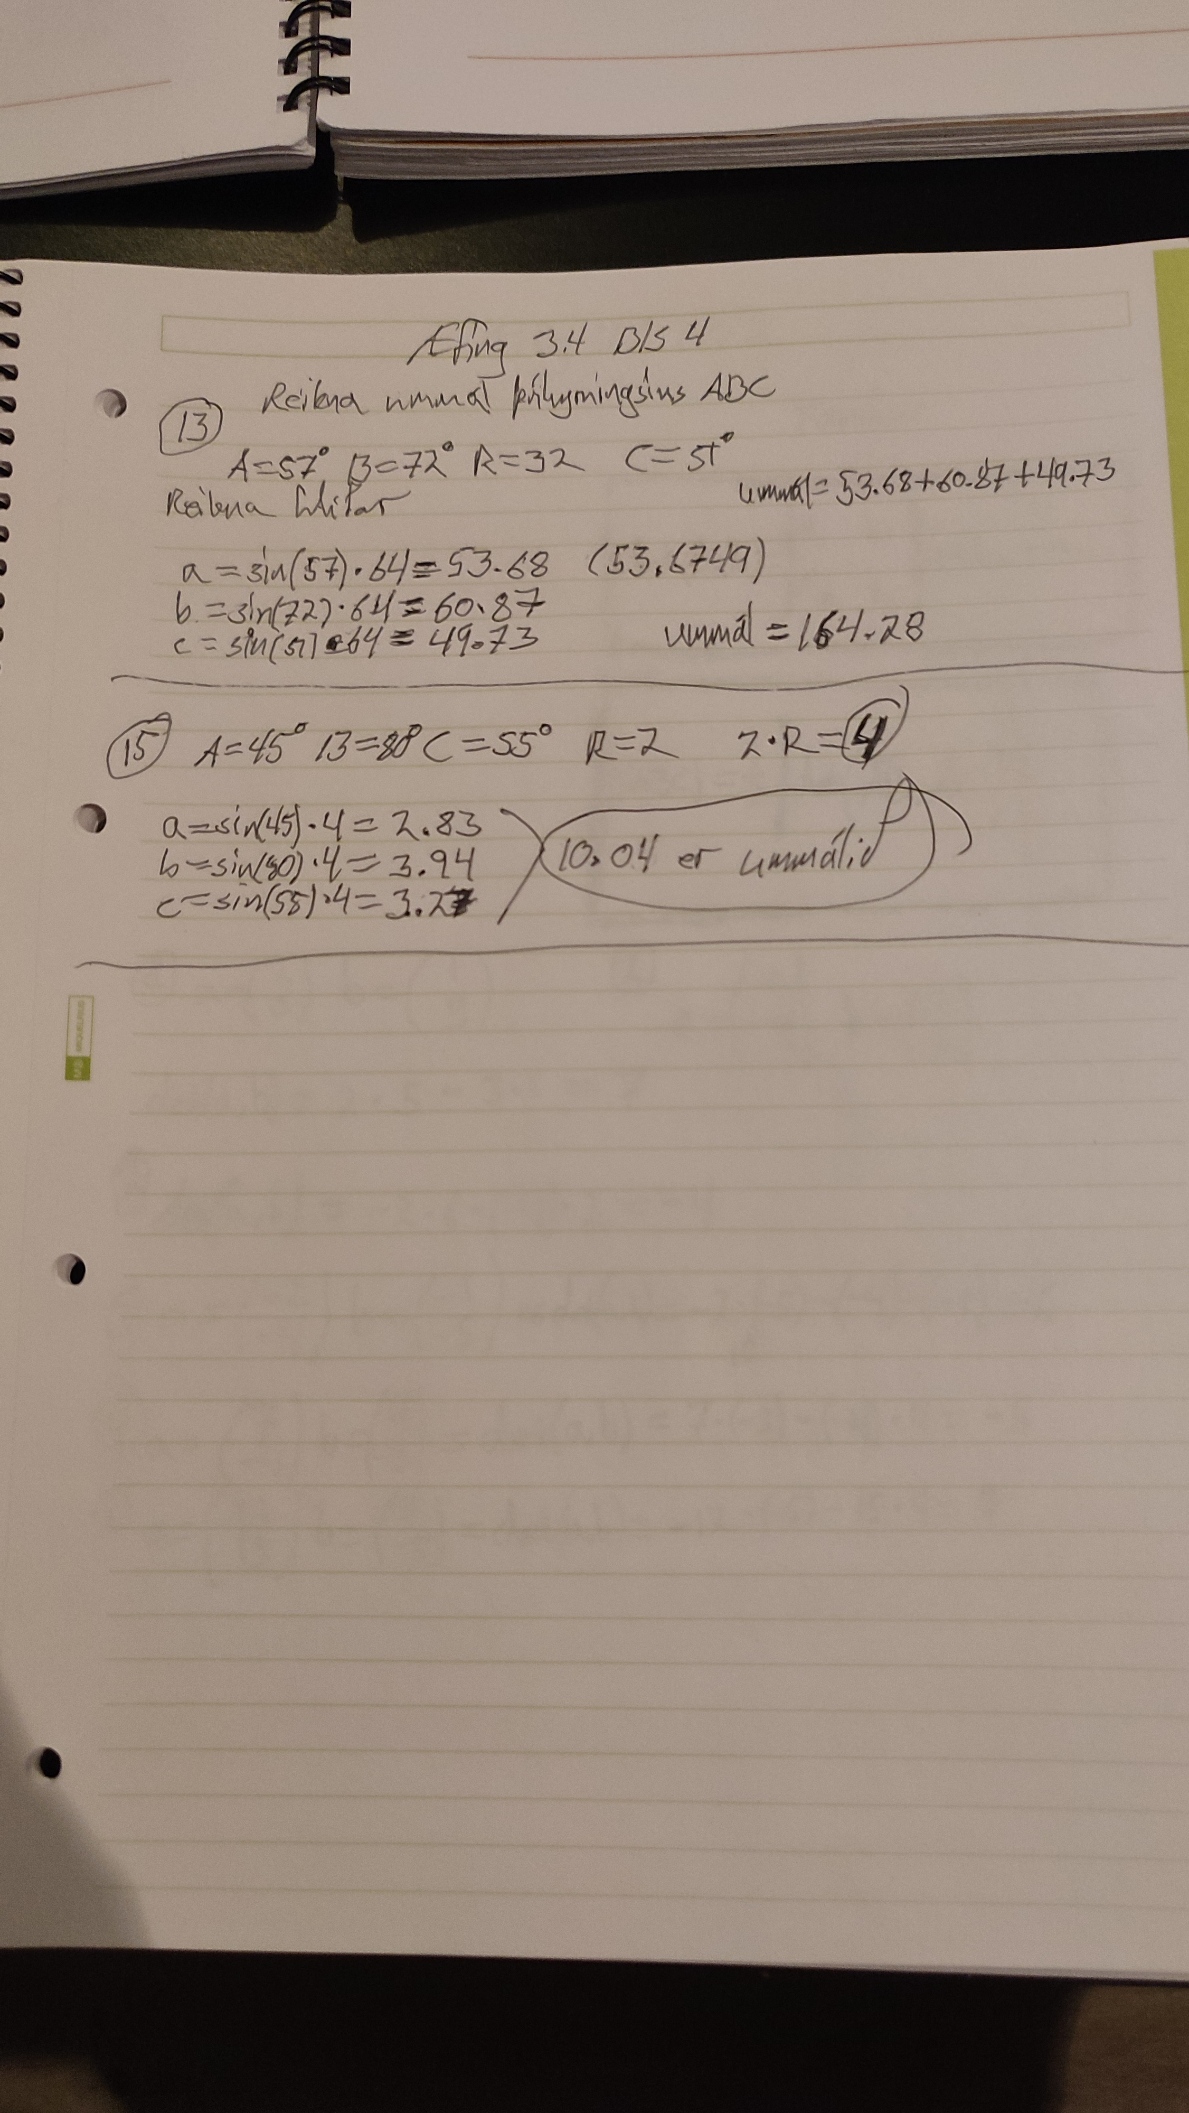 Æfing 3.4 Bls 4
Reikna ummál þríhyrningsins ABC
13
A=57° B=72° R=32 C=51°
Reikna hliðar
ummál=53.68+60.87+49.73
a=sin(57)·64=53.68 (53.6749)
b=sin(72)·64=60.87
c=sin(51)·64=49.73
ummál=164.28
15 A=45° B=80° C=55° R=2 2·R=4
a=sin(45)·4=2.83
b=sin(80)·4=3.94
c=sin(55)·4=3.27
10.04 er ummálið